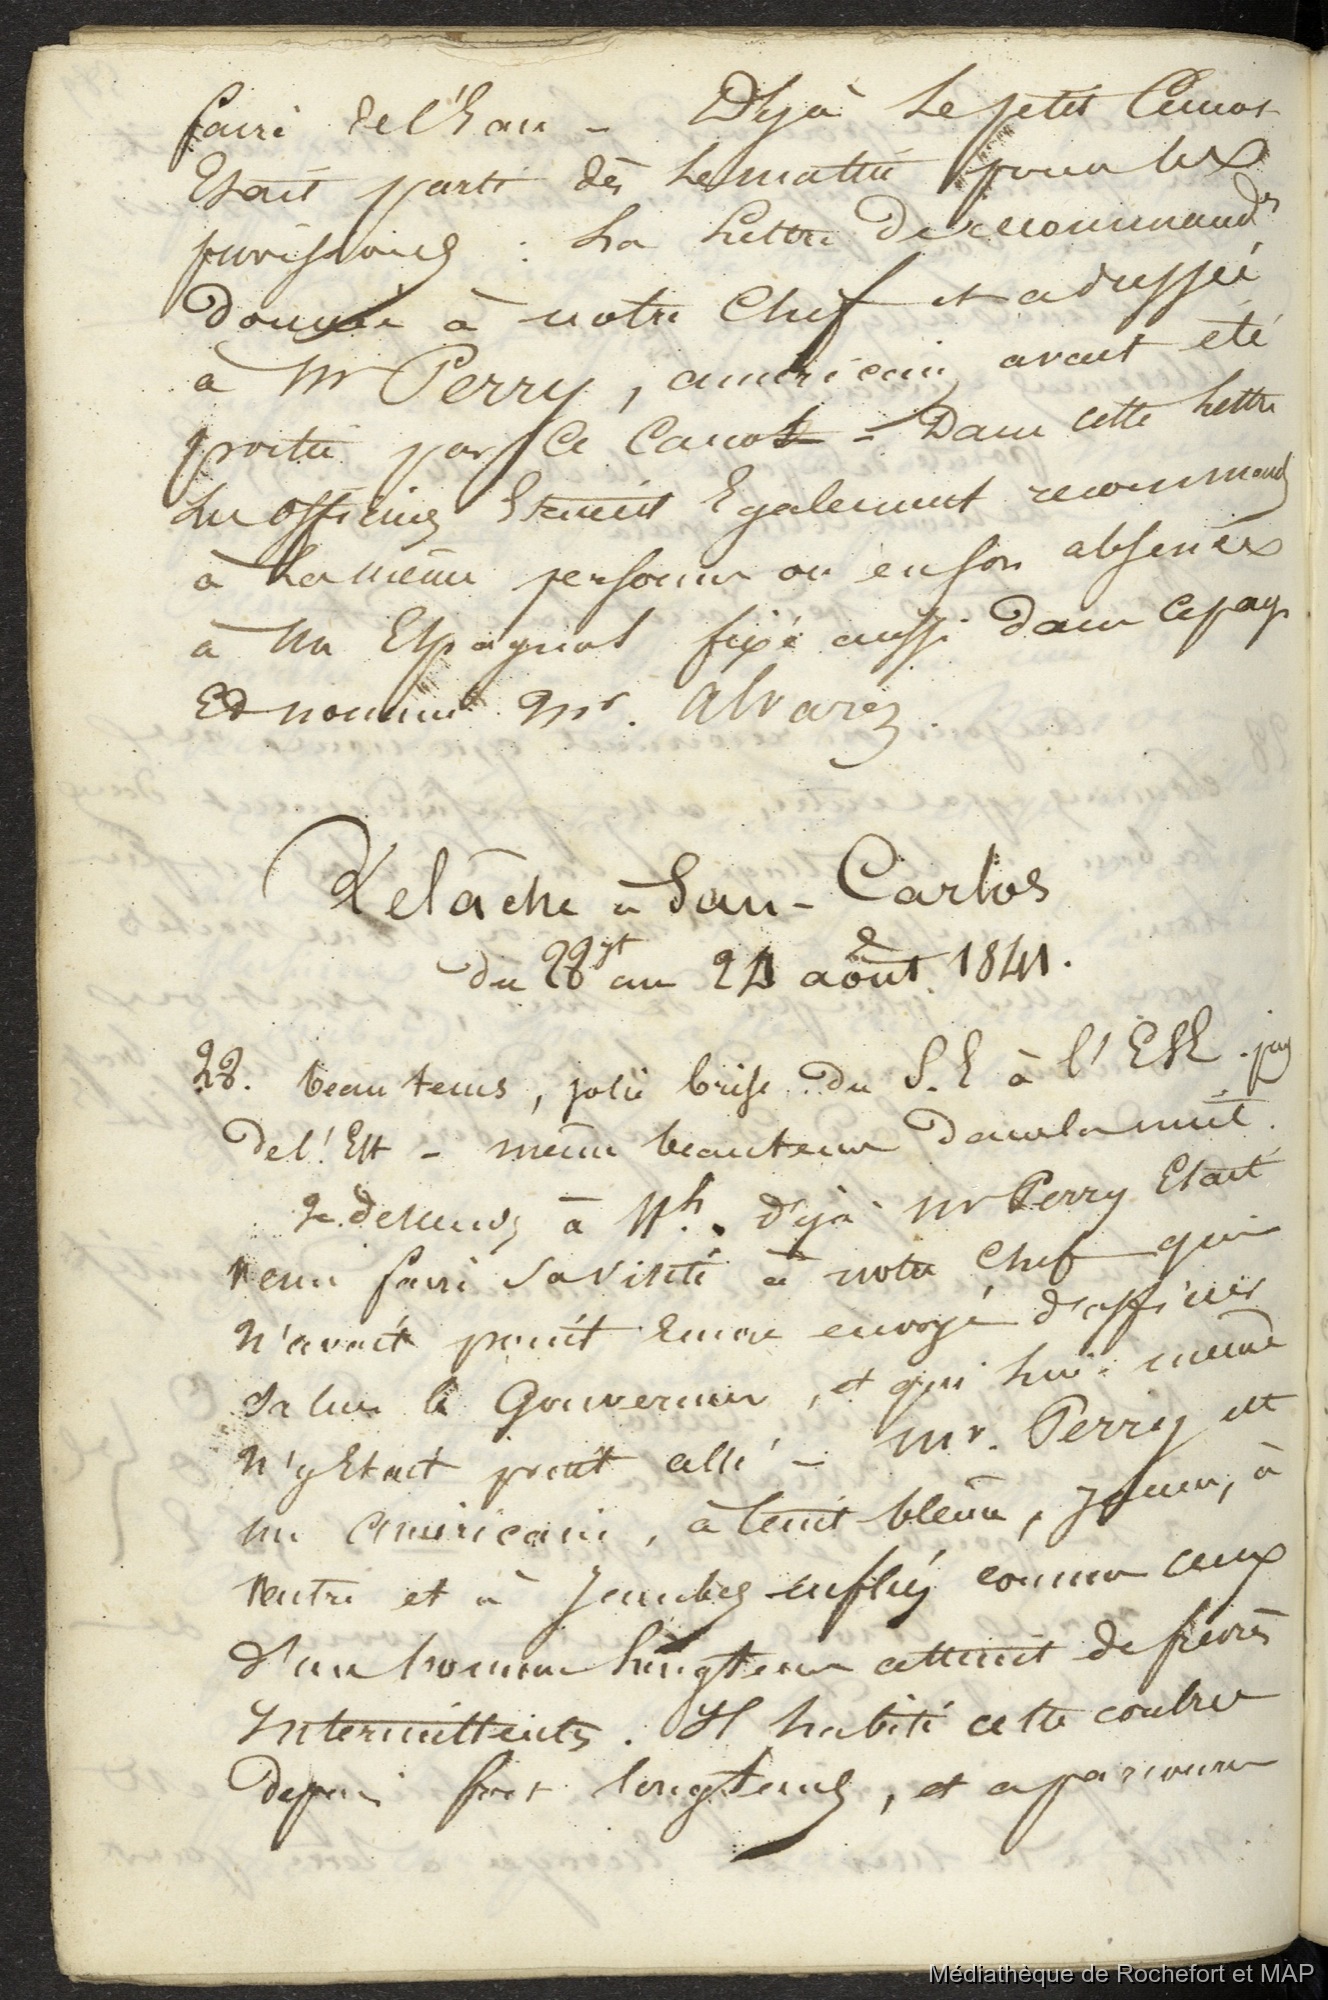 faire de l'Eau - Déjà Le petit Canot
Etait parti dès Le matin pour les
provisions : La Lettre de recommandon
donnée à notre Chef et adressée
à Mr Perry, américain, avait été
portée par Ce Canot - Dans cette Lettre
Les officiers Etaient Egalement recommandés
à La même personne ou en son absence
à Un Espagnol fixé aussi dans Ce pays
Et nommé Mr. Alvarez.
Relâche à San-Carlos
du 28 au 2 août 1841.
28. beau tems, jolie brise du S.E à l'ESE
de l'Est - même beau tems dans la nuit.
Je descends à 11h. déjà Mr Perry Etait
venu faire Sa Visite à notre Chef qui
N'avait point Encore envoyé d'officier
Saluer le Gouverneur, et qui Lui-même
N'y Etait point allé - Mr. Perry est
un américain, à teint blême, jaune, à
Ventre et à Jambes enflés comme ceux
d'un homme Longtems atteint de fièvres
Intermittentes. Il habite cette contrée
depuis fort longtems, et a parcouru
Médiathèque de Rochefort et MAP